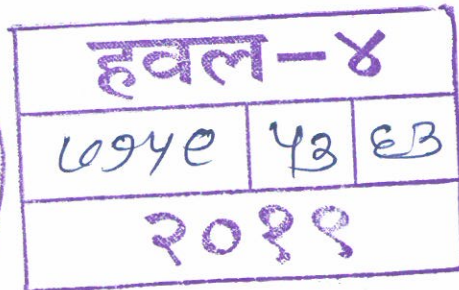 हवल-४
७१५९ ५३ ६३
२०१९